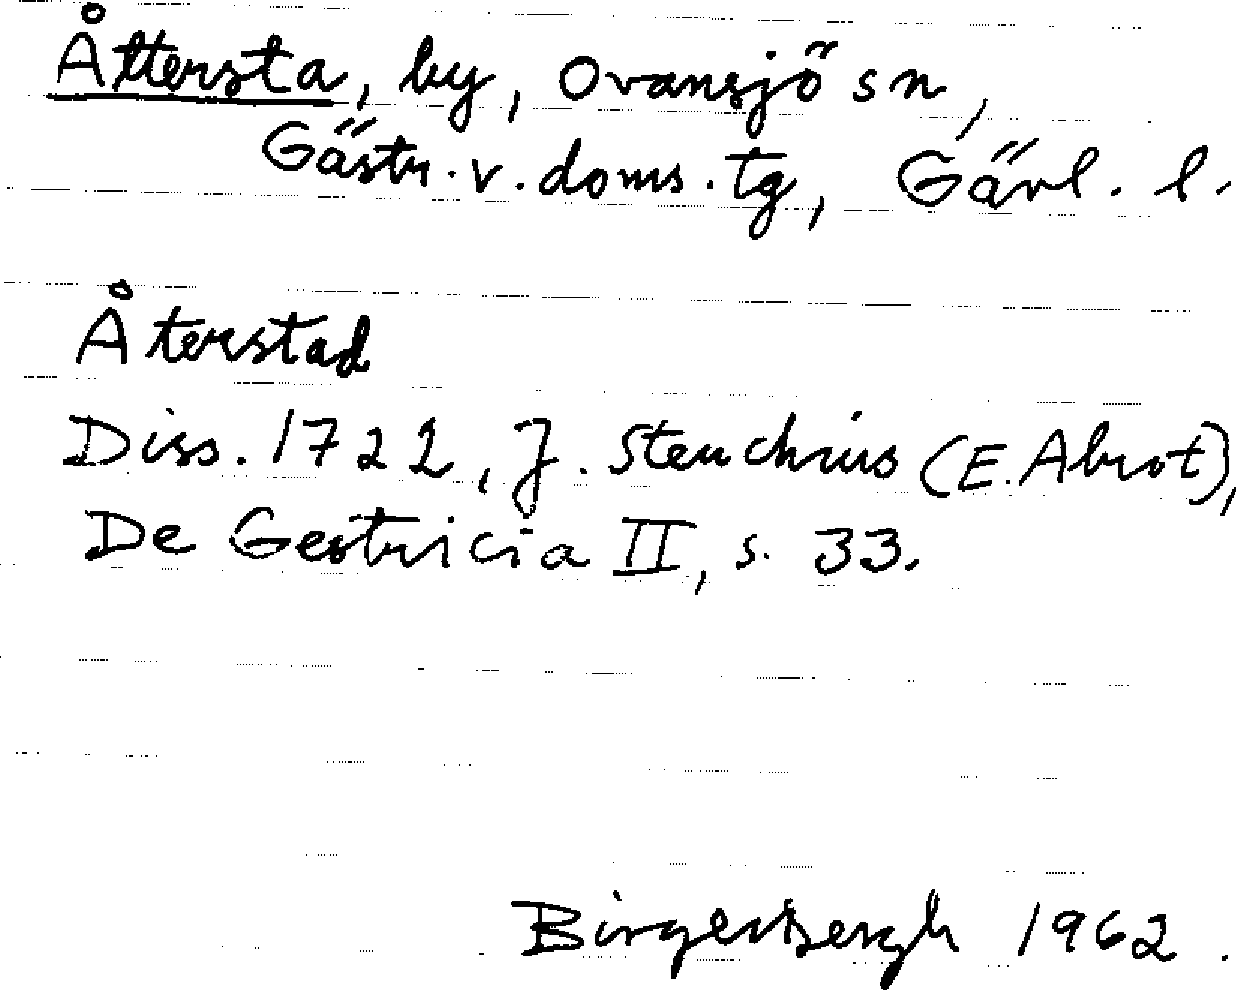 Åttersta, by, Ovansjö sn,
Gästr. v. doms. tg, Gävl. l.
Återstad
Diss. 1722, J. Steuchius (E. Abrot),
De Gestricia II, s. 33.
Birger Bergh 1962.